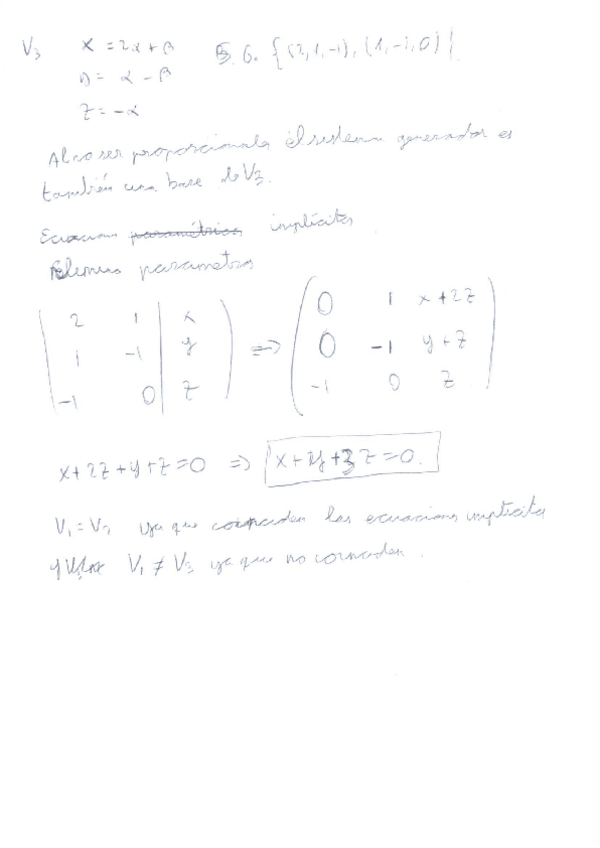 V₃ x = 2α + β S.G. {(2,1,-1), (1,-1,0)}
y = α - β
z = -α
Al no ser proporcionales el sistema generador es
también una base de V₃.
Ecuaciones paramétricas implícitas
parametros
2 1 | x 0 1 x+2z
1 -1 | y => 0 -1 y+z
-1 0 | z -1 0 z
x+2z+y+z=0 => x+y+3z=0.
V₁ = V₂ ya que coinciden las ecuaciones implícitas
y V₁ ≠ V₃ ya que no coinciden.